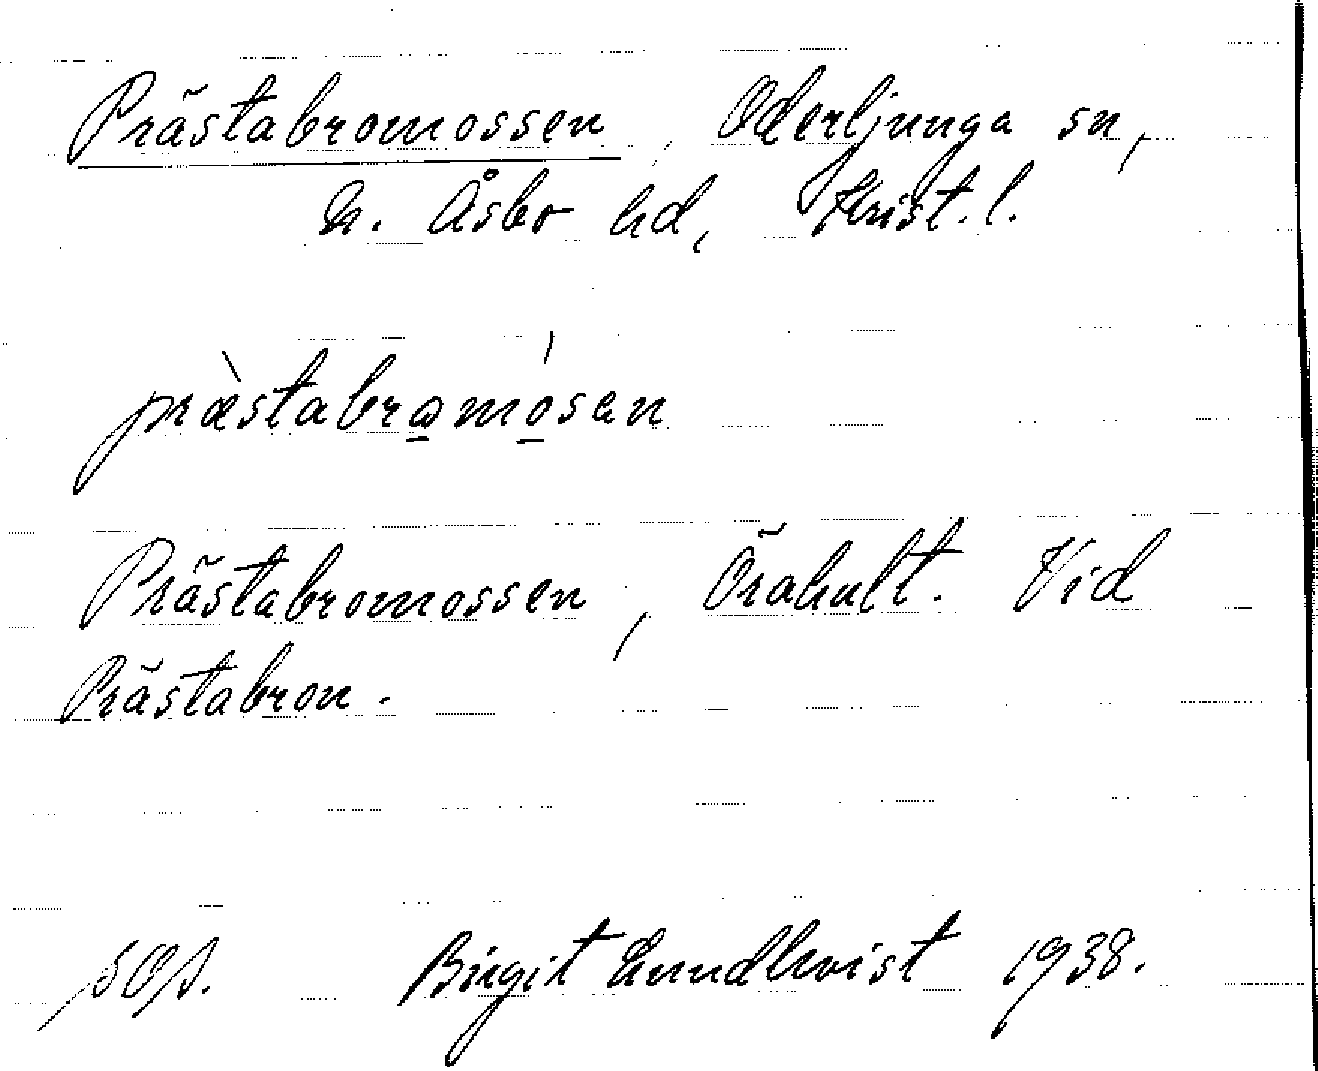 Prästabromossen, Oderljunga sn,
N. Åsbo hd, Krist. l.
præ̀stabramósen
Prästabromossen, Örahult. Vid
Prästabron.
Birgit Lundkvist 1938.